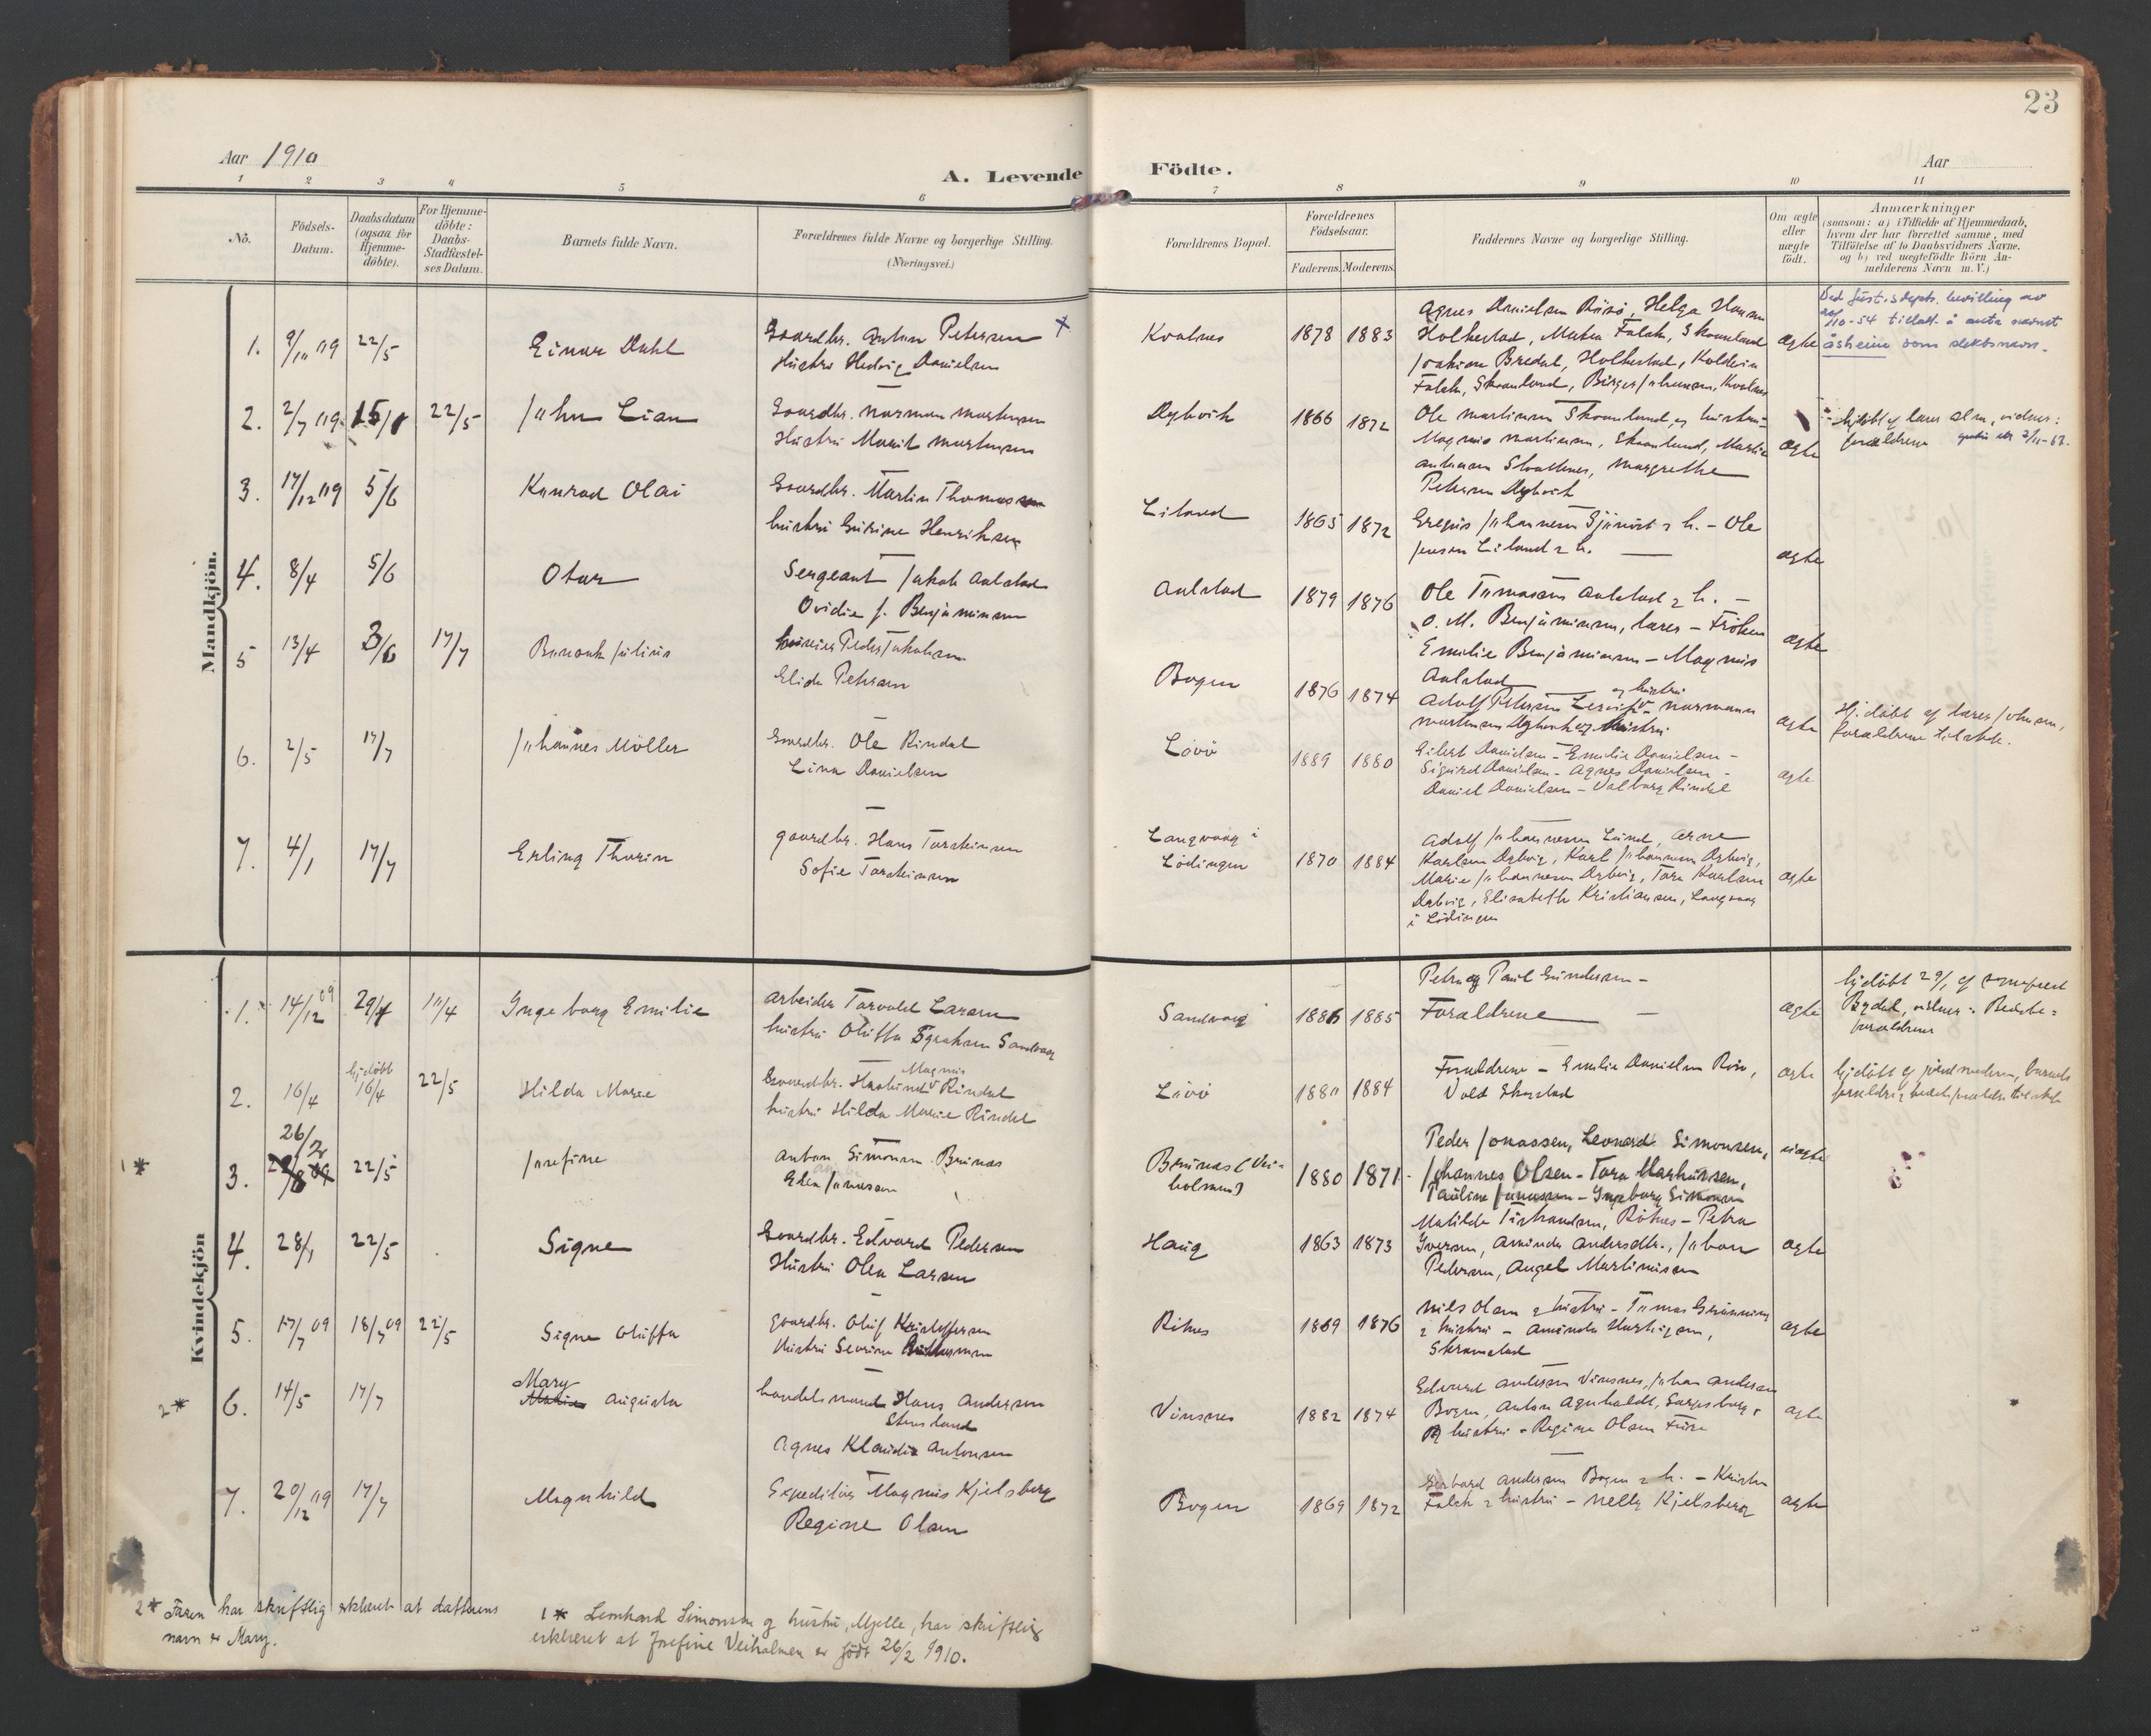 23
Aar 1910
A. Levende Födte.
Aar
1 2 3 4 5 6 7 8 9 10 11
No.
Födsels-
Datum.
Daabsdatum
(ogsaa for
Hjemme-
döbte).
For Hjemme-
döbte:
Daabs-
Stadfæstel-
ses Datum.
Barnets fulde Navn.
Forældrenes fulde Navne og borgerlige Stilling.
(Næringsvei.)
Forældrenes Bopæl.
Forældrenes
Födselsaar.
Faderens. Moderens.
Faddernes Navne og borgerlige Stilling.
Om ægte
eller
uægte
födt.
Anmærkninger
(saasom: a) i Tilfælde af Hjemmedaab,
hvem der har forrettet samme, med
Tilföielse af to Daabsvidners Navne.
og b) ved uægtefödte Börn An-
melderens Navn m. V.)
Mandkjön.
1. 9/10 09 22/5 Einar Dahl
Gaardbr. Anton Petersen
Hustru Hedvig Danielsen
Kvalnes 1878 1883
Agnes Danielsen Risö, Helga Hansen
Holkestad, Falch, Skomland
Joakim Bredal, Holkestad,
Falch, Skomland, Birger Johansen,
ægte
Ved just.depts. bevilling av
/10-54 tillatt å anta navnet
åsheim som slektsnavn.
2. 2/7 09 22/5 John Lian
Gaardbr. Norman Mortensen
Hustru Marit Mortensen
Dybvik 1866 1872
Ole Martinsen Skomland, og hustru
Magnus Martinsen, Skomland,
Margrethe
Petersen Dybvik
ægte
hjdöbt af lærer
forældrene
3. 17/12 09 5/6 Konrad Olai
Gaardbr. Martin Thomassen
hustru Gurine Henriksen
Liland 1865 1872
Johannesen h. - Ole
Jensen Liland & h.
ægte
4. 8/4 5/6 Otar
Sergeant Jakob Aalstad
Ovidie J. Benjaminsen
Aalstad 1879 1876
Ole Tomassen Aalstad & h. -
O. M. Benjaminsen, lærer - Fröken
Emilie Benjaminsen - Magnus
Aalstad
ægte
5 13/4 3/6 17/7 Julius
Peder Jakobsen
Elida Petersen
Bogen 1876 1874
og hustru
Adolf Petersen Normann
Mortensen Dybvik og hustru
ægte
Hj.döbt af lærer Johnsen,
forældrene tilstede.
6. 2/5 17/7 Johannes Möller
Gaardbr. Ole Rindal
Lina Danielsen
Lövö 1889 1880
Eilert Danielsen - Emilie Danielsen -
Sigurd Danielsen - Agnes Danielsen -
Daniel Danielsen - Valborg Rindal
ægte
7. 4/1 17/7 Erling Thorin
gaardbr. Hans Torsteinsen
Sofie Torsteinsen
Langvaag i
Lödingen 1870 1884
Adolf Johannesen Lund, Arne
Karlsen Dybvig, Karl Johannesen Dybvig,
Marie Johannesen Dybvig, Tora Karlsen
Dybvig, Elisabeth Kristiansen, Langvaag
i Lödingen
ægte
Kvindekjön
1. 14/12 09 10/4 Ingeborg Emilie
Arbeider Torvald Larsen
hustru Oluffa Sandvaag
Sandvaag 1886 1885
Petra og Paul Gundersen -
Forældrene
ægte
hjdöbt 29/1 af
Bydal, vidner: Bedste-
forældrene
2. 16/4 hjdöbt 16/4 22/5 Hilda Marie
Magnus
Gaardbr. Rindal
hustru Hilda Marie Rindal
Lövö 1880 1884
Forældrene - Emilie Danielsen Risö,
Vold
ægte
hjdöbt af jordmoderen, barnets
forældre & bedsteforældre tilstede
1* 3. 26/2 22/5 Josefine
Anton Simonsen Brunes
Elen Jonassen
Brunes (Vei-
holmen) 1880 1871
Peder Jonassen, Leonard Simonsen,
Johannes Olsen - Tora Markussen,
Pauline Jonassen - Ingeborg Simonsen
uægte
4. 28/1 22/5 Signe
Gaardbr. Edvard Pedersen
Hustru Olea Larsen
Haug 1863 1873
Matilde Rötnes - Petra
Iversen, Aminda Andersdtr., Johan
Pedersen, Angel Martinusen
ægte
5. 17/7 09 18/7 09 22/5 Signe Oluffa
gaardbr. Oluf Kristoffersen
Hustru Sevrine
Rötnes 1869 1876
Nils Olsen & hustru - Tomas
& hustru - Aminda
ægte
2* 6. 14/5 17/7 Mary Augusta
handelsmand Hans Andersen
Stensland
Agnes Klaudia Antonsen
Vinsnes 1882 1874
Edvard Andersen Vinsnes, Johan Andersen
Bogen, Anton Agnholdt, Sarpsborg,
og hustru - Regine Olsen
ægte
7. 20/12 09 17/7 Magnhild
Expeditör Magnus Kjelsberg
Regine Olsen
Bogen 1869 1872
Gerhard Andersen Bogen & h. - Kristen
Falch & hustru - Nelly Kjelsberg
ægte
2* Faren har skriftlig erklæret at datterens
navn er Mary.
1* Leonhard Simonsen og hustru, Mjelle, har skriftlig
erklæret at Josefine Veiholmen er födt 26/2 1910.